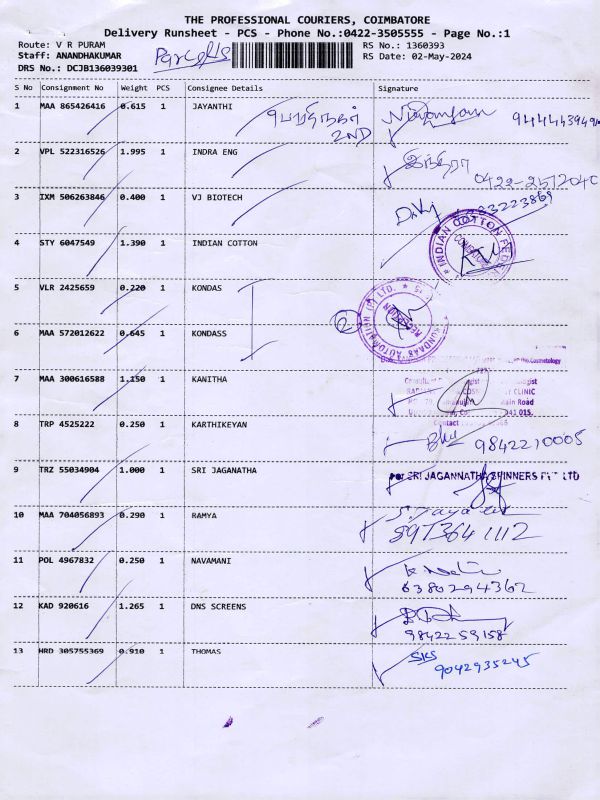 THE PROFESSIONAL COURIERS, COIMBATORE
Delivery Runsheet - PCS - Phone No.:0422-3505555 - Page No.:1
Route: V R PURAM
Staff: ANANDHAKUMAR
DRS No.: DCJB136039301
Parcels
RS No.: 1360393
RS Date: 02-May-2024
S No Consignment No Weight PCS Consignee Details Signature
1 MAA 865426416 0.615 1 JAYANTHI 2ND
2 VPL 522316526 1.995 1 INDRA ENG இந்திரா
3 IXM 506263846 0.400 1 VJ BIOTECH
4 STY 6047549 1.390 1 INDIAN COTTON INDIAN COTTON
5 VLR 2425659 0.220 1 KONDAS
6 MAA 572012622 0.645 1 KONDASS 2
7 MAA 300616588 1.150 1 KANITHA
8 TRP 4525222 0.250 1 KARTHIKEYAN 9842210005
9 TRZ 55034904 1.000 1 SRI JAGANATHA For SRI JAGANNATHA SPINNERS PVT LTD
10 MAA 704056893 0.290 1 RAMYA 8973641112
11 POL 4967832 0.250 1 NAVAMANI 6380294362
12 KAD 920616 1.265 1 DNS SCREENS 9842259158
13 HRD 305755369 0.910 1 THOMAS SKS 9042935245